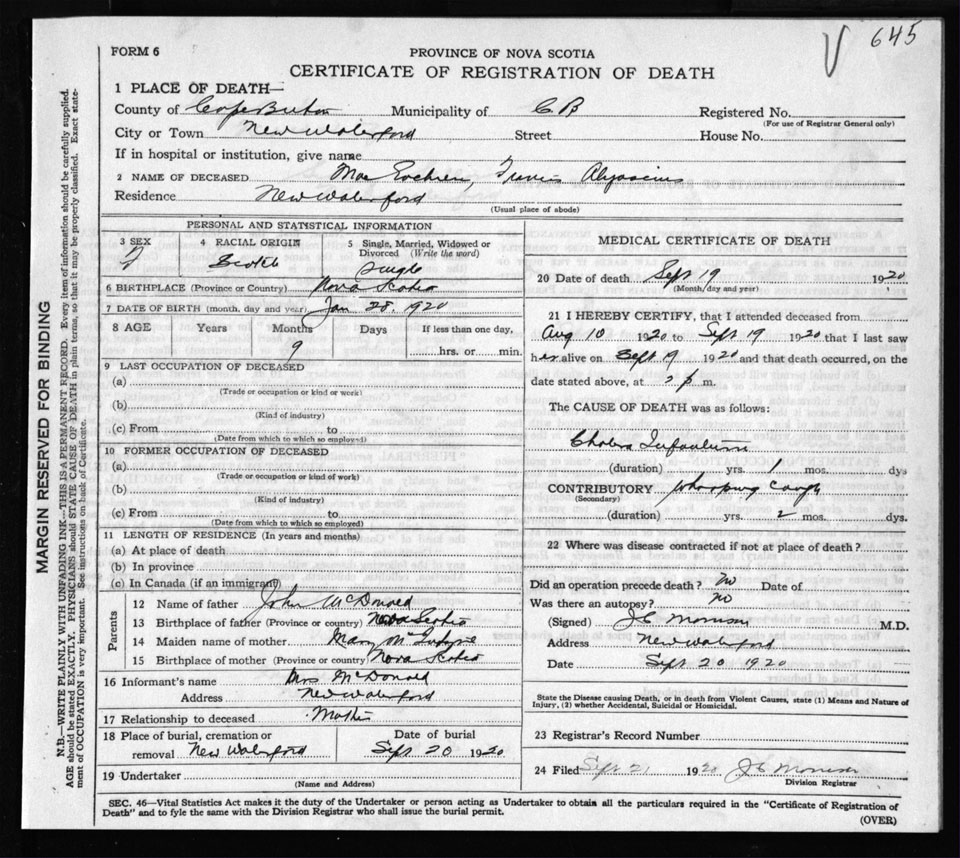 645
FORM 6
PROVINCE OF NOVA SCOTIA
CERTIFICATE OF REGISTRATION OF DEATH
1 PLACE OF DEATH—
County of Cape Breton Municipality of C B Registered No.
(For use of Registrar General only)
City or Town New Waterford Street House No.
If in hospital or institution, give name
2 NAME OF DECEASED Mac
Residence New Waterford
(Usual place of abode)
PERSONAL AND STATISTICAL INFORMATION
3 SEX 4 RACIAL ORIGIN 5 Single, Married, Widowed or Divorced (Write the word)
Scotch Single
6 BIRTHPLACE (Province or Country) Nova Scotia
7 DATE OF BIRTH (month, day and year) Jan 28, 1920
8 AGE Years Months Days If less than one day,
9 hrs. or min.
9 LAST OCCUPATION OF DECEASED
(a)
(Trade or occupation or kind or work)
(b)
(Kind of industry)
(c) From to
(Date from which to which so employed)
10 FORMER OCCUPATION OF DECEASED
(a)
(Trade or occupation or kind of work)
(b)
(Kind of industry)
(c) From to
(Date from which to which so employed)
11 LENGTH OF RESIDENCE (In years and months)
(a) At place of death
(b) In province
(c) In Canada (if an immigrant)
Parents
12 Name of father John McDonald
13 Birthplace of father (Province or country) Nova Scotia
14 Maiden name of mother Mary
15 Birthplace of mother (Province or country) Nova Scotia
16 Informant's name Mrs McDonald
Address New Waterford
17 Relationship to deceased Mother
18 Place of burial, cremation or Date of burial
removal New Waterford Sept 20 1920
19 Undertaker
(Name and Address)
MEDICAL CERTIFICATE OF DEATH
20 Date of death Sept 19 1920
(Month, day and year)
21 I HEREBY CERTIFY, that I attended deceased from
Aug 10 1920 to Sept 19 1920 that I last saw
her alive on Sept 19 1920 and that death occurred, on the
date stated above, at m.
The CAUSE OF DEATH was as follows:
Cholera Infantum
(duration) yrs. 1 mos. dys
CONTRIBUTORY Whooping Cough
(Secondary)
(duration) yrs. 2 mos. dys.
22 Where was disease contracted if not at place of death?
Did an operation precede death? No Date of
Was there an autopsy? No
(Signed) J C Morrison M.D.
Address New Waterford
Date Sept 20 1920
State the Disease causing Death, or in death from Violent Causes, state (1) Means and Nature of
Injury, (2) whether Accidental, Suicidal or Homicidal.
23 Registrar's Record Number
24 Filed Sept 21 1920 J C Morrison
Division Registrar
SEC. 46—Vital Statistics Act makes it the duty of the Undertaker or person acting as Undertaker to obtain all the particulars required in the "Certificate of Registration of
Death" and to fyle the same with the Division Registrar who shall issue the burial permit.
(OVER)
MARGIN RESERVED FOR BINDING
N.B.—WRITE PLAINLY WITH UNFADING INK—THIS IS A PERMANENT RECORD. Every item of information should be carefully supplied.
AGE should be stated EXACTLY. PHYSICIANS should STATE CAUSE OF DEATH in plain terms, so that it may be properly classified. Exact statement of OCCUPATION is very important. See instructions on back of Certificate.